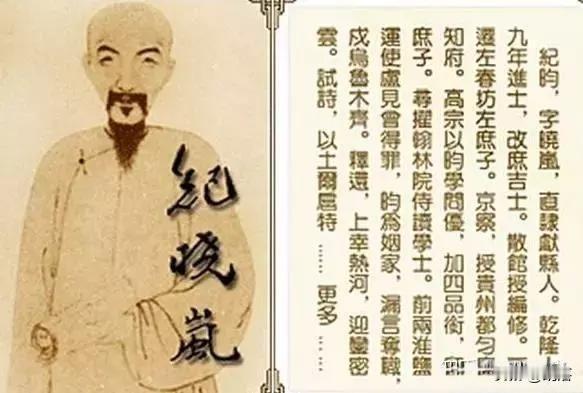 紀晓嵐
紀昀，字曉嵐，直隸獻縣人。乾隆
九年進士，改庶吉士。散館授編修。
遷左春坊左庶子。京察，授貴州都勻
知府。高宗以昀學問優，加四品銜，
庶子。尋擢翰林院侍讀學士。前兩淮鹽
運使盧見曾得罪，昀爲姻家，漏言奪職，
戍烏魯木齊。釋還，上幸熱河，迎鑾密
雲。試詩，以土爾扈特 …… 更多 ……